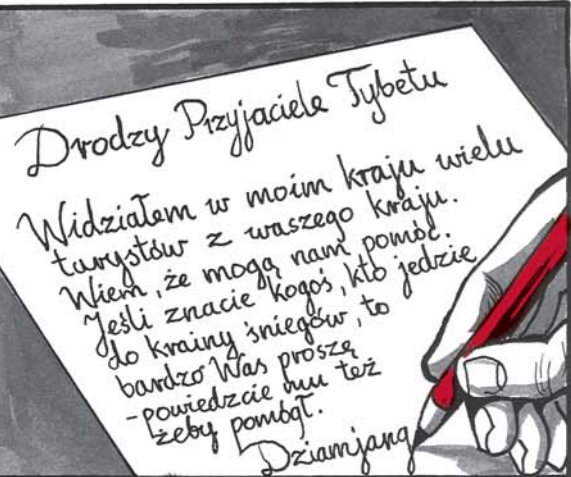 Drodzy Przyjaciele Tybetu
Widziałem w moim kraju wielu
turystów z waszego kraju.
Wiem, że mogą nam pomóc.
Jeśli znacie kogoś, kto jedzie
do krainy śniegów, to
bardzo Was proszę
-powiedzcie mu też
żeby pomógł.
Dziamjang